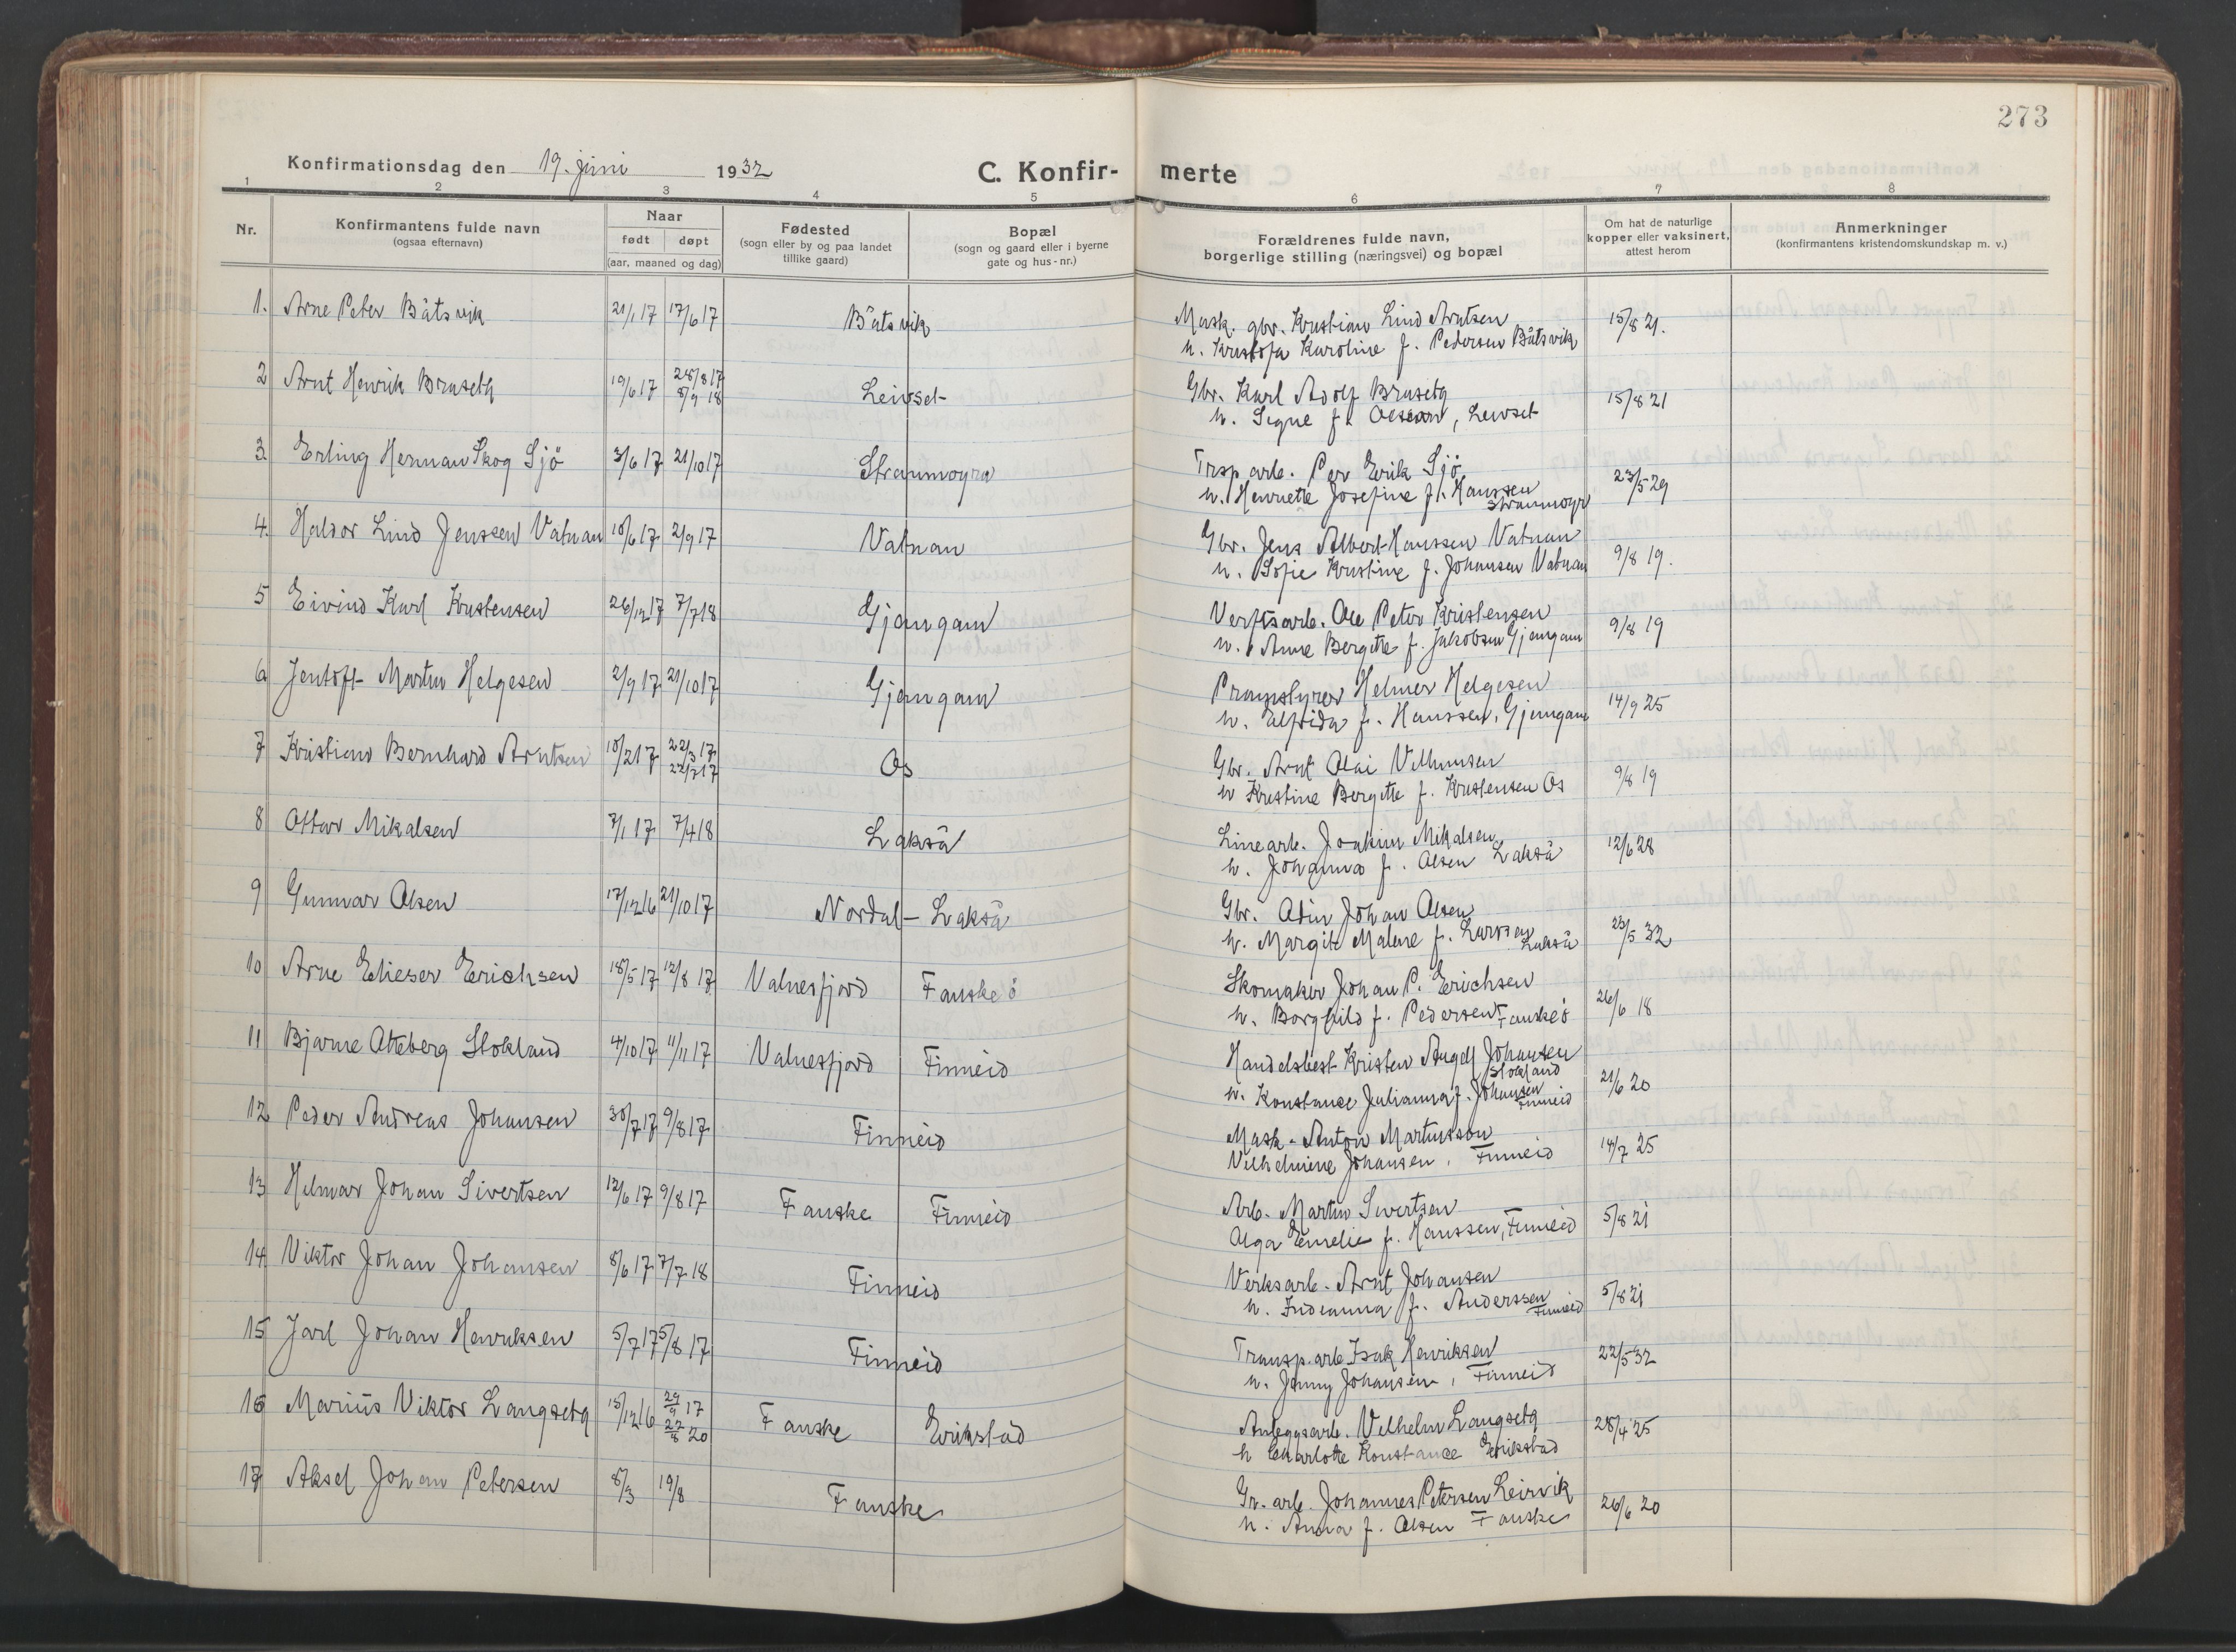 273
Konfirmationsdag den 19. juni 1932 C. Konfir- merte
1 2 3 4 5 6 7 8
Nr. Konfirmantens fulde navn (ogsaa efternavn) Naar født døpt (aar, maaned og dag) Fødested (sogn eller by og paa landet tillike gaard) Bopæl (sogn og gaard eller i byerne gate og hus-nr.) Forældrenes fulde navn, borgerlige stilling (næringsvei) og bopæl Om hat de naturlige kopper eller vaksinert, attest herom Anmerkninger (konfirmantens kristendomskundskap m. v.)
1. Arne Peter Båtsvik 21/1 17 17/6 17 Båtsvik Mask. gbr. Kristian Lind Arntsen 15/8 21.
h. Kristofa Karoline f. Pedersen Båtsvik
2 Arnt Henrik Bruseth 19/6 17 28/8 17 8/9 18 Leivset Gbr. Karl Adolf Brusetg 15/8 21
h. Signe f. Olsen, Leivset
3. Erling Herman Skog Sjö 3/6 17 21/10 17 Straumøyra Trsp. arb. Per Erik Sjö 23/5 29
h. Henriette Josefine f. Hanssen Straumøyr
4. Haldor Lind Jenssen Vatnan 10/6 17 2/9 17 Vatnan Gbr. Jens Albert Hanssen Vatnan 9/8 19.
h. Sofie Kristine f. Johansen Vatnan
5 Eivind Karl Kristensen 26/12 17 7/7 18 Gjemgam Verftsarb. Ole Peter Kristensen 9/8 19
h. Anne Bergitte f. Jakobsen Gjemgam
6 Jentoft Martin Helgesen 2/9 17 21/10 17 Gjemgam Pramstyrer Helmer Helgesen 14/9 25
h. Alfida f. Hanssen, Gjemgam
7 Kristian Bernhard Arntsen 10/2 17 22/3 17 22/7 17 Os Gbr. Arnt Olai Vilhumsen 9/8 19
h Kristine Bergitte f. Kristensen Os
8 Ottar Mikalsen 7/1 17 7/4 18 Lakså Linearb. Joakim Mikalsen 12/6 28
h. Johanna f. Olsen Lakså
9 Gunnar Olsen 17/12 16 21/10 17 Nordal - Lakså Gbr. Odin Johan Olsen 23/5 32
h. Margit Malene f. Larssen Lakså
10 Arne Elieser Erichsen 18/5 17 12/8 17 Valnesfjord Fauske ö Skomaker Johan P. Erichsen 26/6 18
h. Borghild f. Pedersen Fauskeö
11 Bjarne Otteberg Stokland 4/10 17 11/11 17 Valnesfjord Finneid Handelsbest Kristen Angell Johansen Stokland 21/6 20
h. Konstance Julianna f. Johansen Finneid
12 Peder Andreas Johansen 30/7 17 9/8 17 Finneid Mask. Anton Martinsson 14/7 25
Vilhelmine Johansen, Finneid
13 Helmar Johan Sivertsen 12/6 17 9/8 17 Fauske Finneid Arb. Martin Sivertsen 5/8 21
Olga Emelie f. Hanssen, Finneid
14 Viktor Johan Johansen 8/6 17 7/7 18 Finneid Verksarb. Arnt Johansen 5/8 21
h. Indianna f. Anderssen Finneid
15 Jarl Johan Henriksen 5/7 17 5/8 17 Finneid Transp. arb Isak Henriksen 22/5 32
h. Jenny Johansen, Finneid
16 Marius Viktor Langsetg 15/12 16 29/9 17 27/8 20 Fauske Erikstad Anleggsarb. Vilhelm Langsetg 28/4 25
h Charlotte Konstance Erikstad
17 Aksel Johan Petersen 8/3 19/8 Fauske Gr. arb. Johannes Petersen Leirvik 26/6 20
h. Anna f. Olsen Fauske